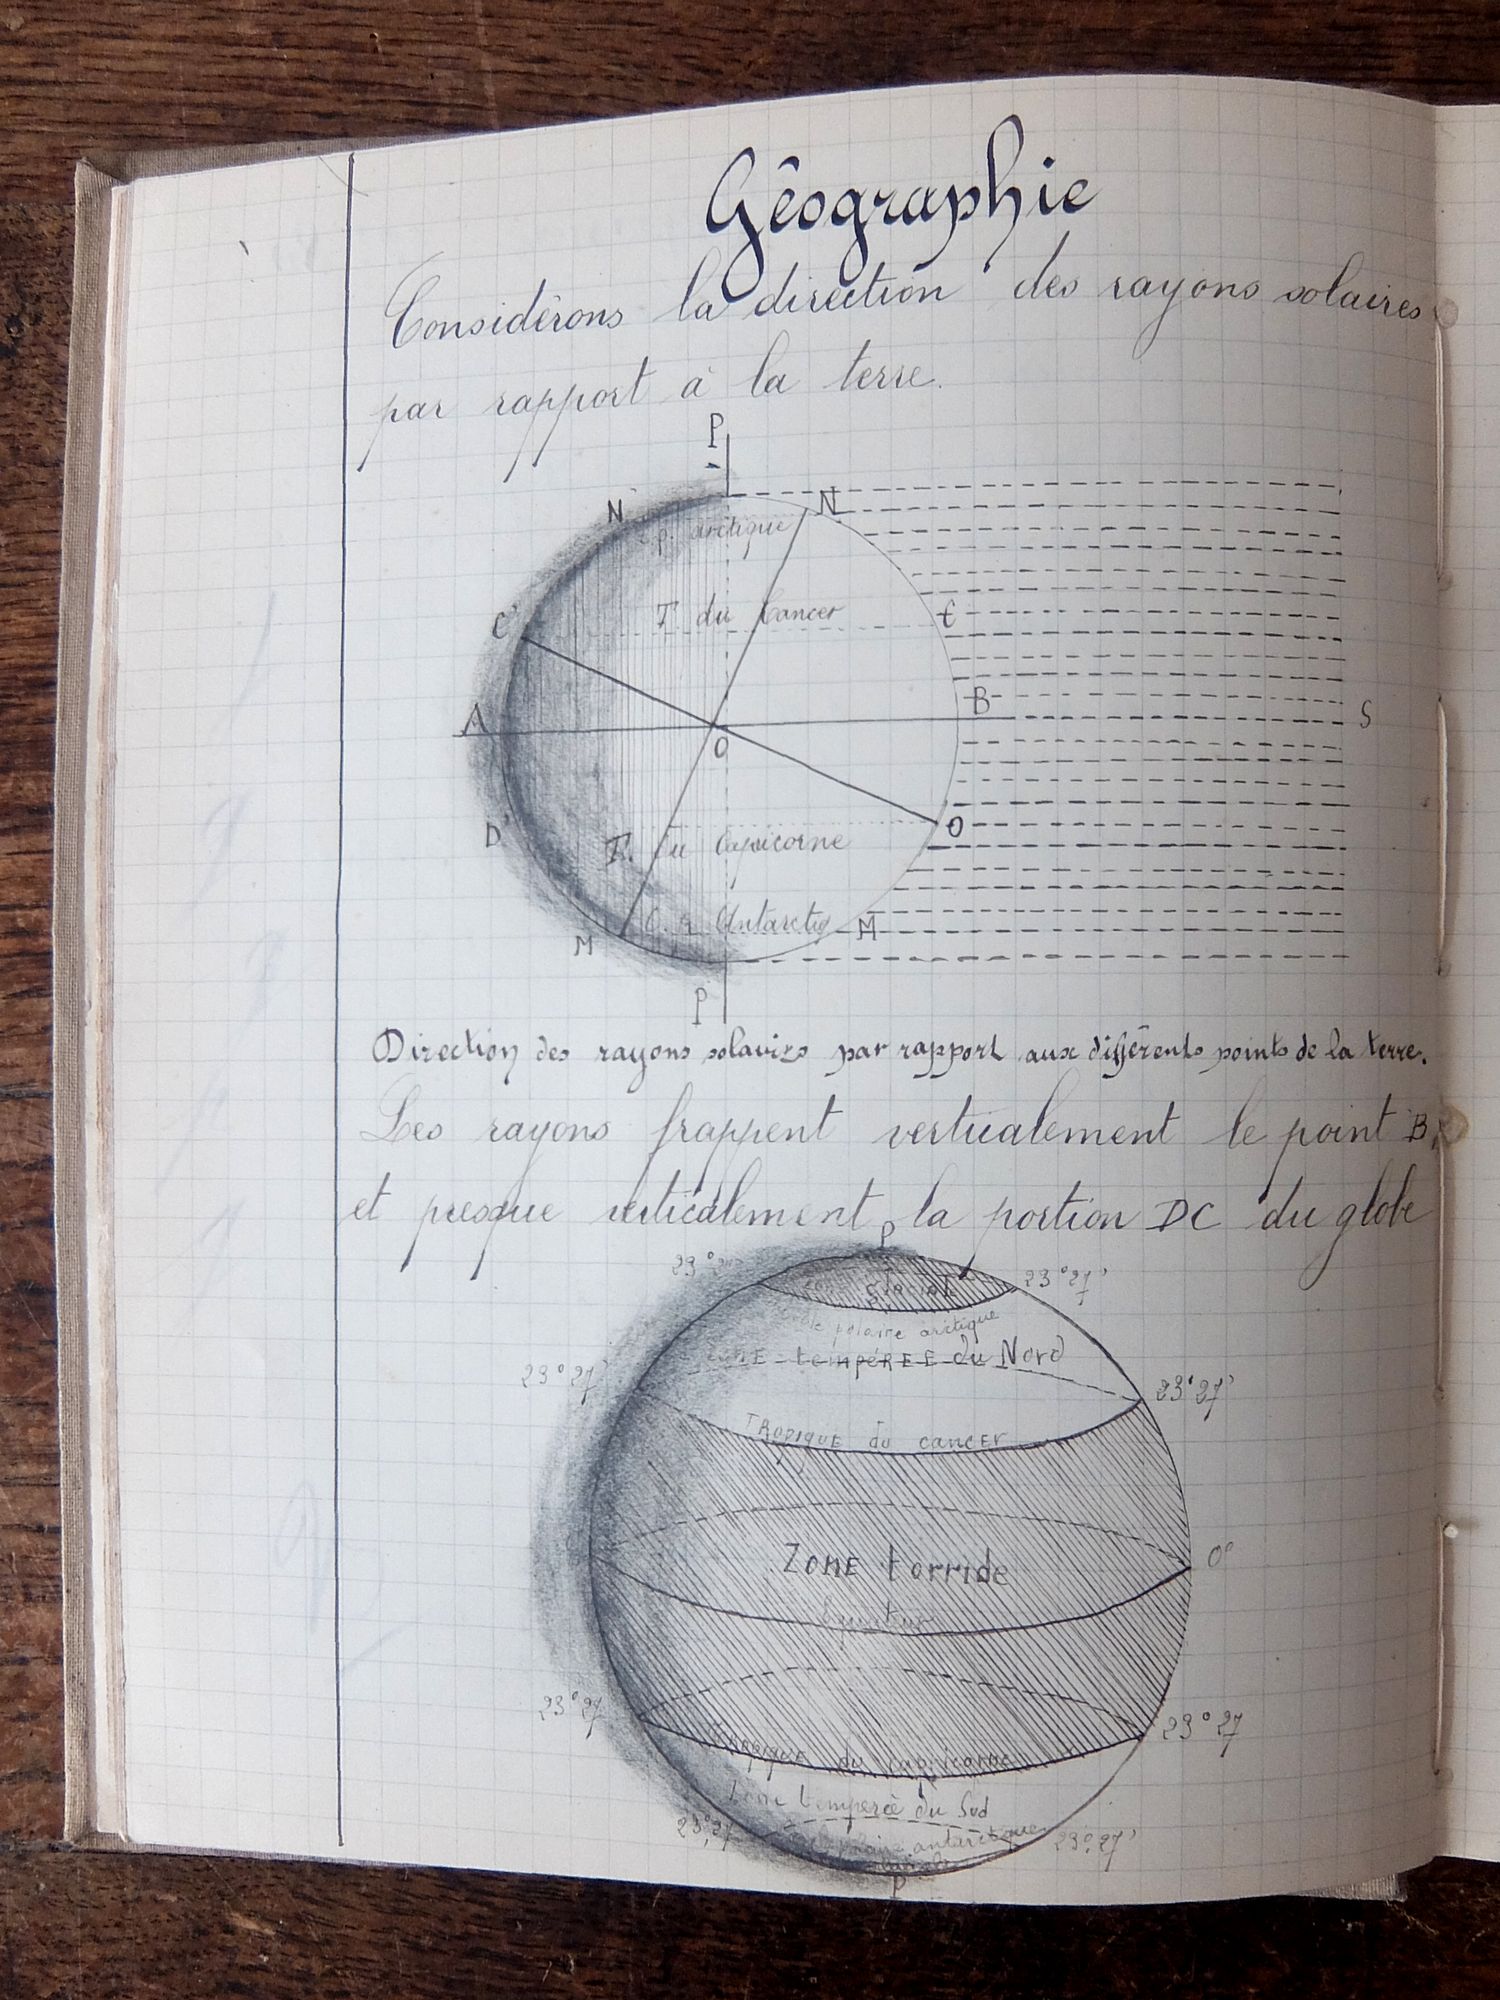 Géographie
Considérons la direction des rayons solaires
par rapport à la terre.
P
N' N
p. arctique
T. du Cancer
C' C
A B S
O
D' O
T. du Capricorne
Antarctiq
M M
P
Direction des rayons solaires par rapport aux différents points de la terre.
Les rayons frappent verticalement le point B,
et presque verticalement la portion DC du globe
P
23°27' 23°27'
glaciale
polaire arctique
ZONE tempéREE du Nord
23°27' 23°27'
TRopiquE du cancer
ZonE torride
0°
Equateur
23°27 23°27
TRopiquE du capricorne
Zone tempérée du Sud
23°27 23°27'
polaire antarctique
P